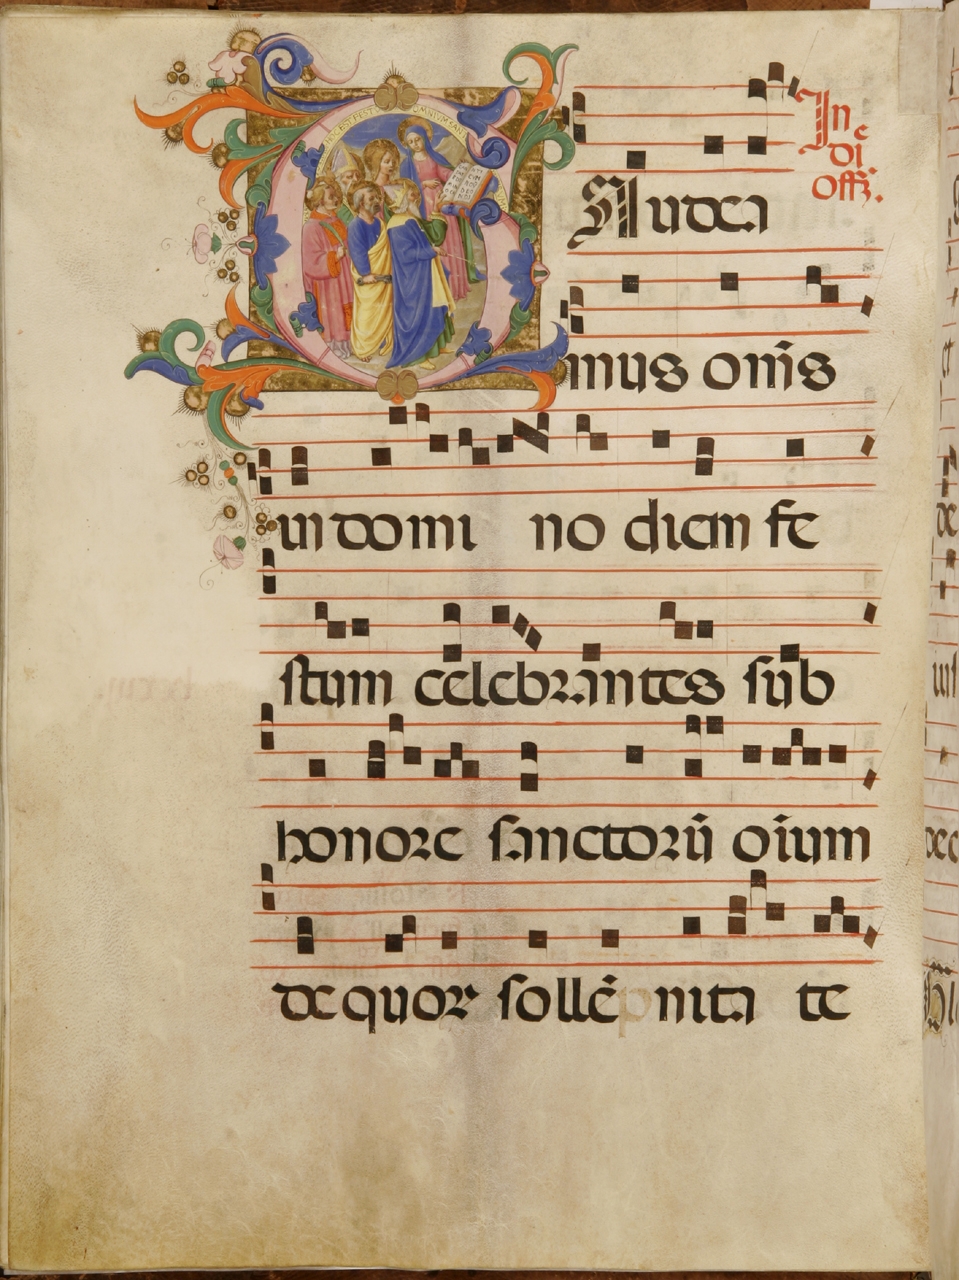 In
die
offz.
GAudea
mus oms
in domi no diem fe
stum celebrantes sub
honore sanctorū oium
de quor sollē nita te